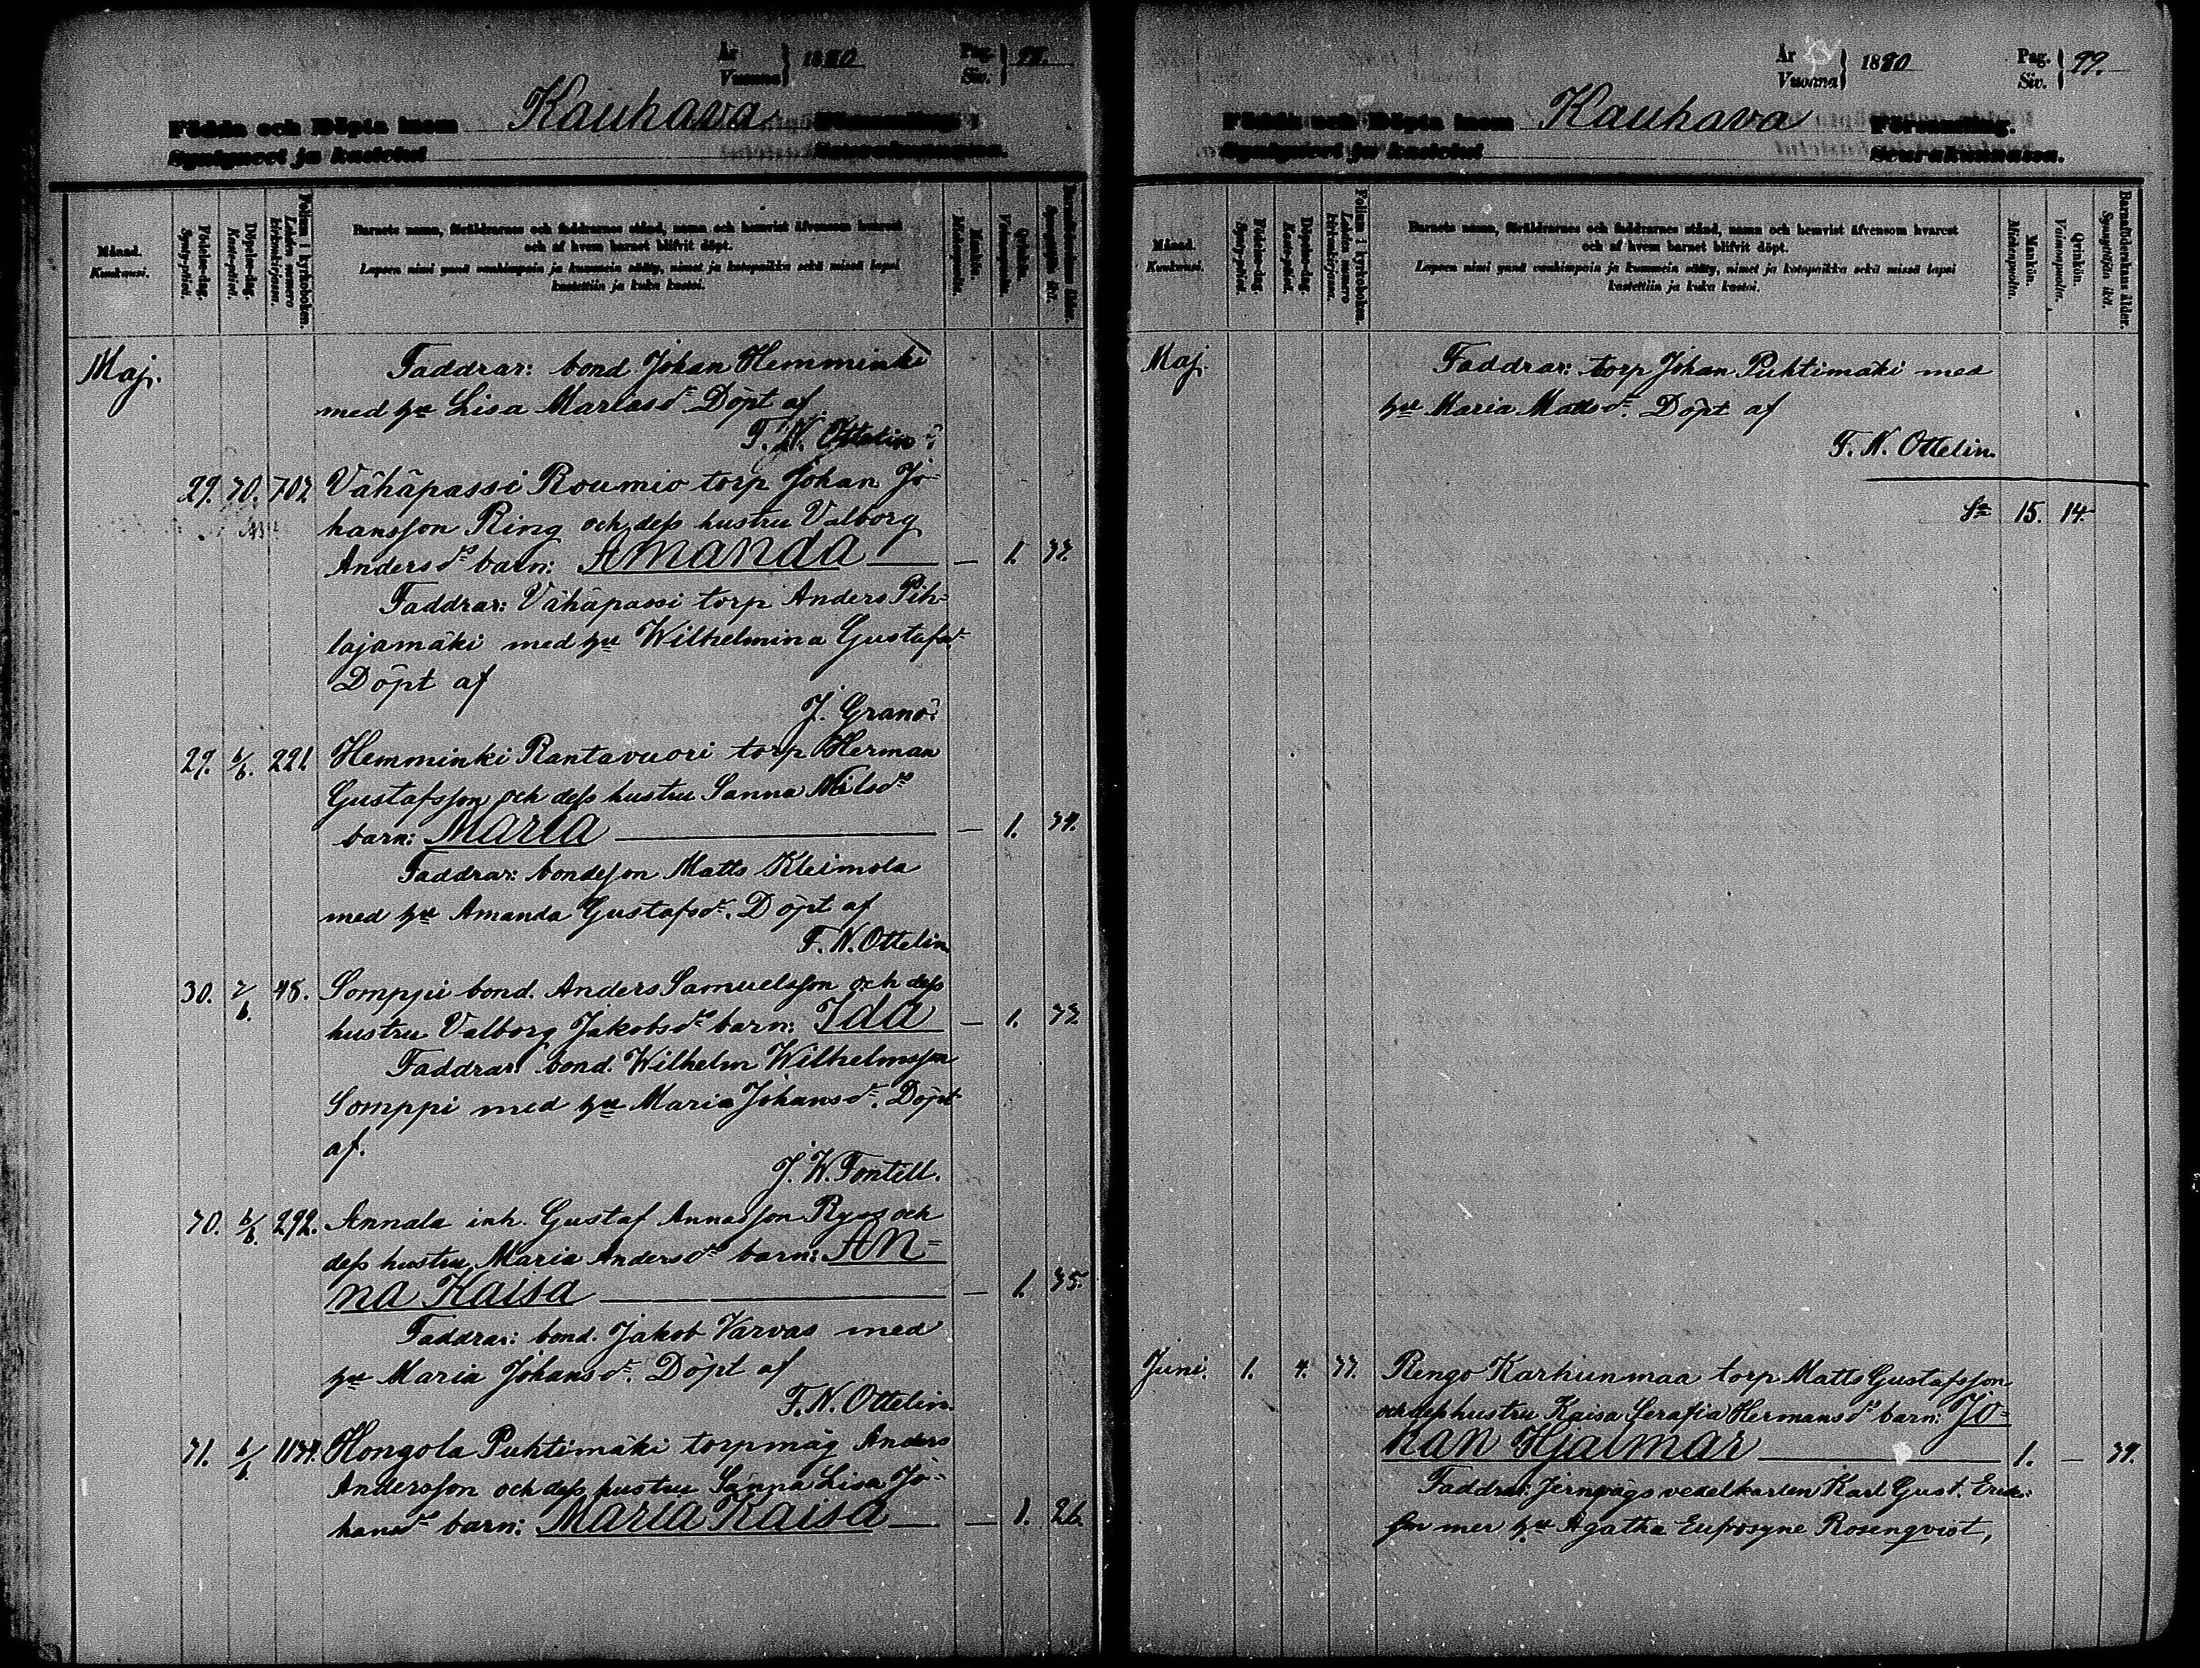 År
Vuonna } 1880
Pag.
Siv. }
Födda och Döpta inom Kauhava Församling.
Syntyneet ja kastetut Seurakunnassa.
Månad.
Kuukausi.
Födelse-dag.
Synty-päivä.
Döpelse-dag.
Kaste-päivä.
Folium i kyrkoboken.
Lehden numero kirkonkirjassa.
Barnets namn, föräldrarnes och faddrarnes stånd, namn och hemvist äfvensom hvarest
och af hvem barnet blifvit döpt.
Lapsen nimi ynnä vanhimpain ja kummein sääty, nimet ja kotopaikka sekä missä lapsi
kastettiin ja kuka kastoi.
Mankön.
Miehenpuolta.
Qvinkön.
Vaimonpuolta.
Barnaföderskans ålder.
Synnyttäjän ikä.
Maj.
Faddrar: bond. Johan Hemminki
med hu Lisa Mariasdr Döpt af
F. N. Ottelin.
29. 30. 702 Vähäpassi Roumio torp Johan Jo-
hansson Ring och dess hustru Valborg
Andersdr barn: Amanda — — 1. 37.
Faddrar: Vähäpassi torp Anders Pih-
lajamäki med hu Wilhelmina Gustafsdr
Döpt af
J. Granö.
29. 6/6. 221 Hemminki Rantavuori torp Herman
Gustafsson och dess hustru Sanna Nilsdr
barn: Maria — — 1. 34.
Faddrar: bondeson Matts Kleimola
med hu Amanda Gustafsdr. Döpt af
F. N. Ottelin.
30. 7/6. 48. Somppi bond. Anders Samuelsson och dess
hustru Valborg Jakobsdr barn: Ida — 1. 37.
Faddrar: bond. Wilhelm Wilhelmsson
Somppi med hu Maria Johansdr. Döpt
af.
J. W. Fontell.
30. 6/6. 292. Annala inh. Gustaf Annasson Ryss och
dess hustru Maria Andersdr barn: An-
na Kaisa — — 1. 35.
Faddrar: bond. Jakob Varvas med
hu Maria Johansdr. Döpt af
F. N. Ottelin.
31. 6/6. 1134. Hongola Puhtimäki torpmåg Anders
Andersson och dess hustru Sanna Lisa Jo-
hansdr barn: Maria Kaisa — — 1. 26.
År
Vuonna } 1880
Pag.
Siv. } 99.
Födda och Döpta inom Kauhava Församling.
Syntyneet ja kastetut Seurakunnassa.
Månad.
Kuukausi.
Födelse-dag.
Synty-päivä.
Döpelse-dag.
Kaste-päivä.
Folium i kyrkoboken.
Lehden numero kirkonkirjassa.
Barnets namn, föräldrarnes och faddrarnes stånd, namn och hemvist äfvensom hvarest
och af hvem barnet blifvit döpt.
Lapsen nimi ynnä vanhimpain ja kummein sääty, nimet ja kotopaikka sekä missä lapsi
kastettiin ja kuka kastoi.
Mankön.
Miehenpuolta.
Qvinkön.
Vaimonpuolta.
Barnaföderskans ålder.
Synnyttäjän ikä.
Maj.
Faddrar: torp Johan Puhtimäki med
hu Maria Mattsdr. Döpt af
F. N. Ottelin.
Sa 15. 14.
Juni. 1. 4. 37. Rengo Karhunmaa torp Matts Gustafsson
och dess hustru Kaisa Serafia Hermansdr barn: Jo-
han Hjalmar — 1. — 39.
Faddrar: Jernvägsvexelkarlen Karl Gust. Eriks-
son med hu Agatha Eufrosyne Rosenqvist,